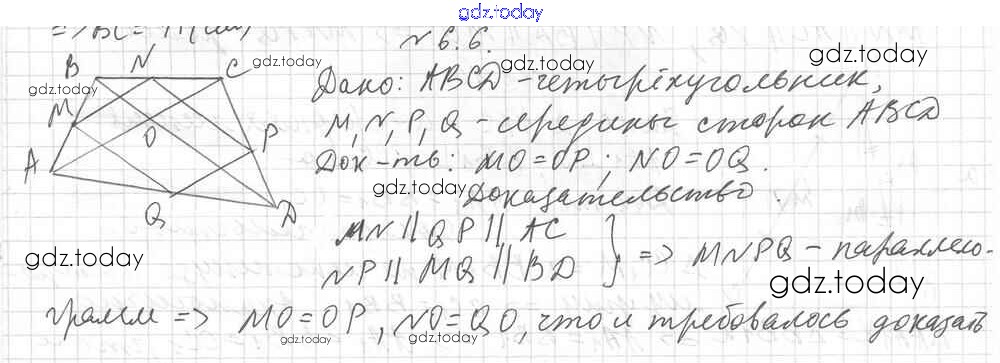 gdz.today
=> BC = 11 (см)
N 6.6.
Дано: ABCD - четырёхугольник,
M, N, P, Q - середины сторон ABCD
Док-ть: MO = OP; NO = OQ.
Доказательство.
MN || QP || AC
NP || MQ || BD } => MNPQ - параллело-
грамм => MO = OP, NO = QO, что и требовалось доказать
B N C
M
O P
A
Q D
gdz.today
gdz.today
gdz.today
gdz.today
gdz.today
gdz.today
gdz.today
gdz.today
gdz.today
gdz.today